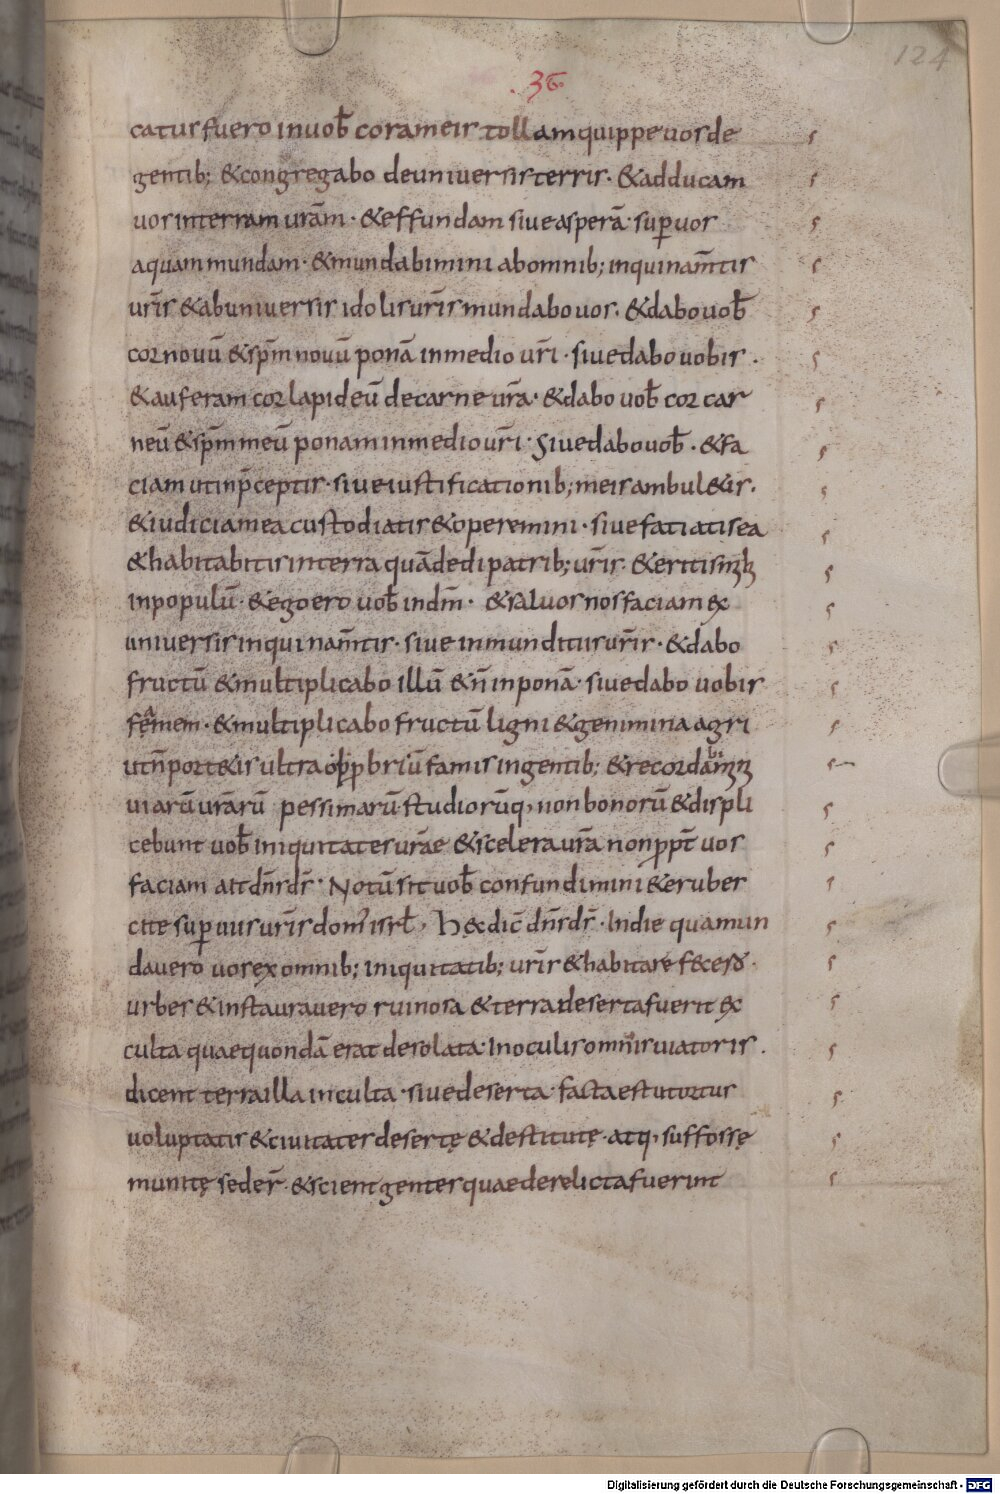 124
.36.
catus fuero in vob̅ coram eis tollam quippe vos de
gentib; & congregabo de universis terris · & adducam
vos in terram ur̅am · & effundam sive asperā · sup vos
aquam mundam · & mundabimini ab omnib; inquinam̅tis
ur̅is & ab universis idolis ur̅is mundabo vos · & dabo vob̅
cor novū & sp̅m novū ponā in medio ur̅i · sive dabo vobis ·
& auferam cor lapideū de carne ur̅a · & dabo vob̅ cor car
neū & sp̅m meū ponam in medio ur̅i · sive dabo vob̅ · & fa
ciam ut in p̅ceptis · sive iustificationib; meis ambul&is ·
& iudicia mea custodiatis & operemini · sive fatiatis ea
& habitabitis in terra quā dedi patrib; ur̅is · & eritis m
in populū · & ego ero vob̅ in dm̅ · & salvos nos faciam ex
universis inquinam̅tis · sive inmunditiis ur̅is · & dabo
fructū & multiplicabo illū & n̅ inponā · sive dabo vobis
famem · & multiplicabo fructū ligni & genimina agri
ut n̅ port&is ultra opp̱briū famis in gentib; & recordabim
viarū ur̅arū pessimarū studiorūq, non bonorū & displi
cebunt vob̅ iniquitates ur̅ae & scelera ur̅a non ppt̅ vos
faciam ait dn̅s ds̅ · Notū sit vob̅ confundimini & erubes
cite sup viis ur̅is dom' isrl̅, Hęc dic̅ dn̅s ds̅ · In die qua mun
davero vos ex omnib; iniquitatib; ur̅is & habitare feceʀo ·
urbes & instauravero ruinosa & terra deserta fuerit ex
culta quae quondā erat desolata · In oculis omnis viatoris ·
dicent terra illa inculta · sive deserta · facta est ut ortus
voluptatis & civitates desertę & destitutę · atq, suffossę
munitę seder̅ · & scient gentes quae derelicta fuerint
Digitalisierung gefördert durch die Deutsche Forschungsgemeinschaft - DFG